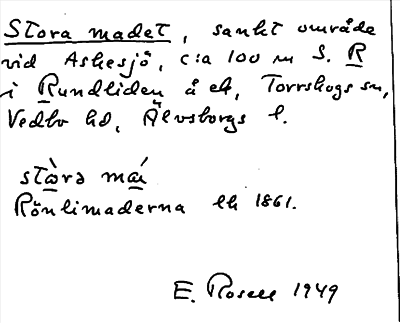 Stora madet, sankt område
vid Askesjö, c:a 100 m S. R
i Rundliden å ek, Torrskogs sn,
Vedbo hd, Älvsborgs l.
stòra
Rönlimaderna ek 1861.
E. Rosell 1949